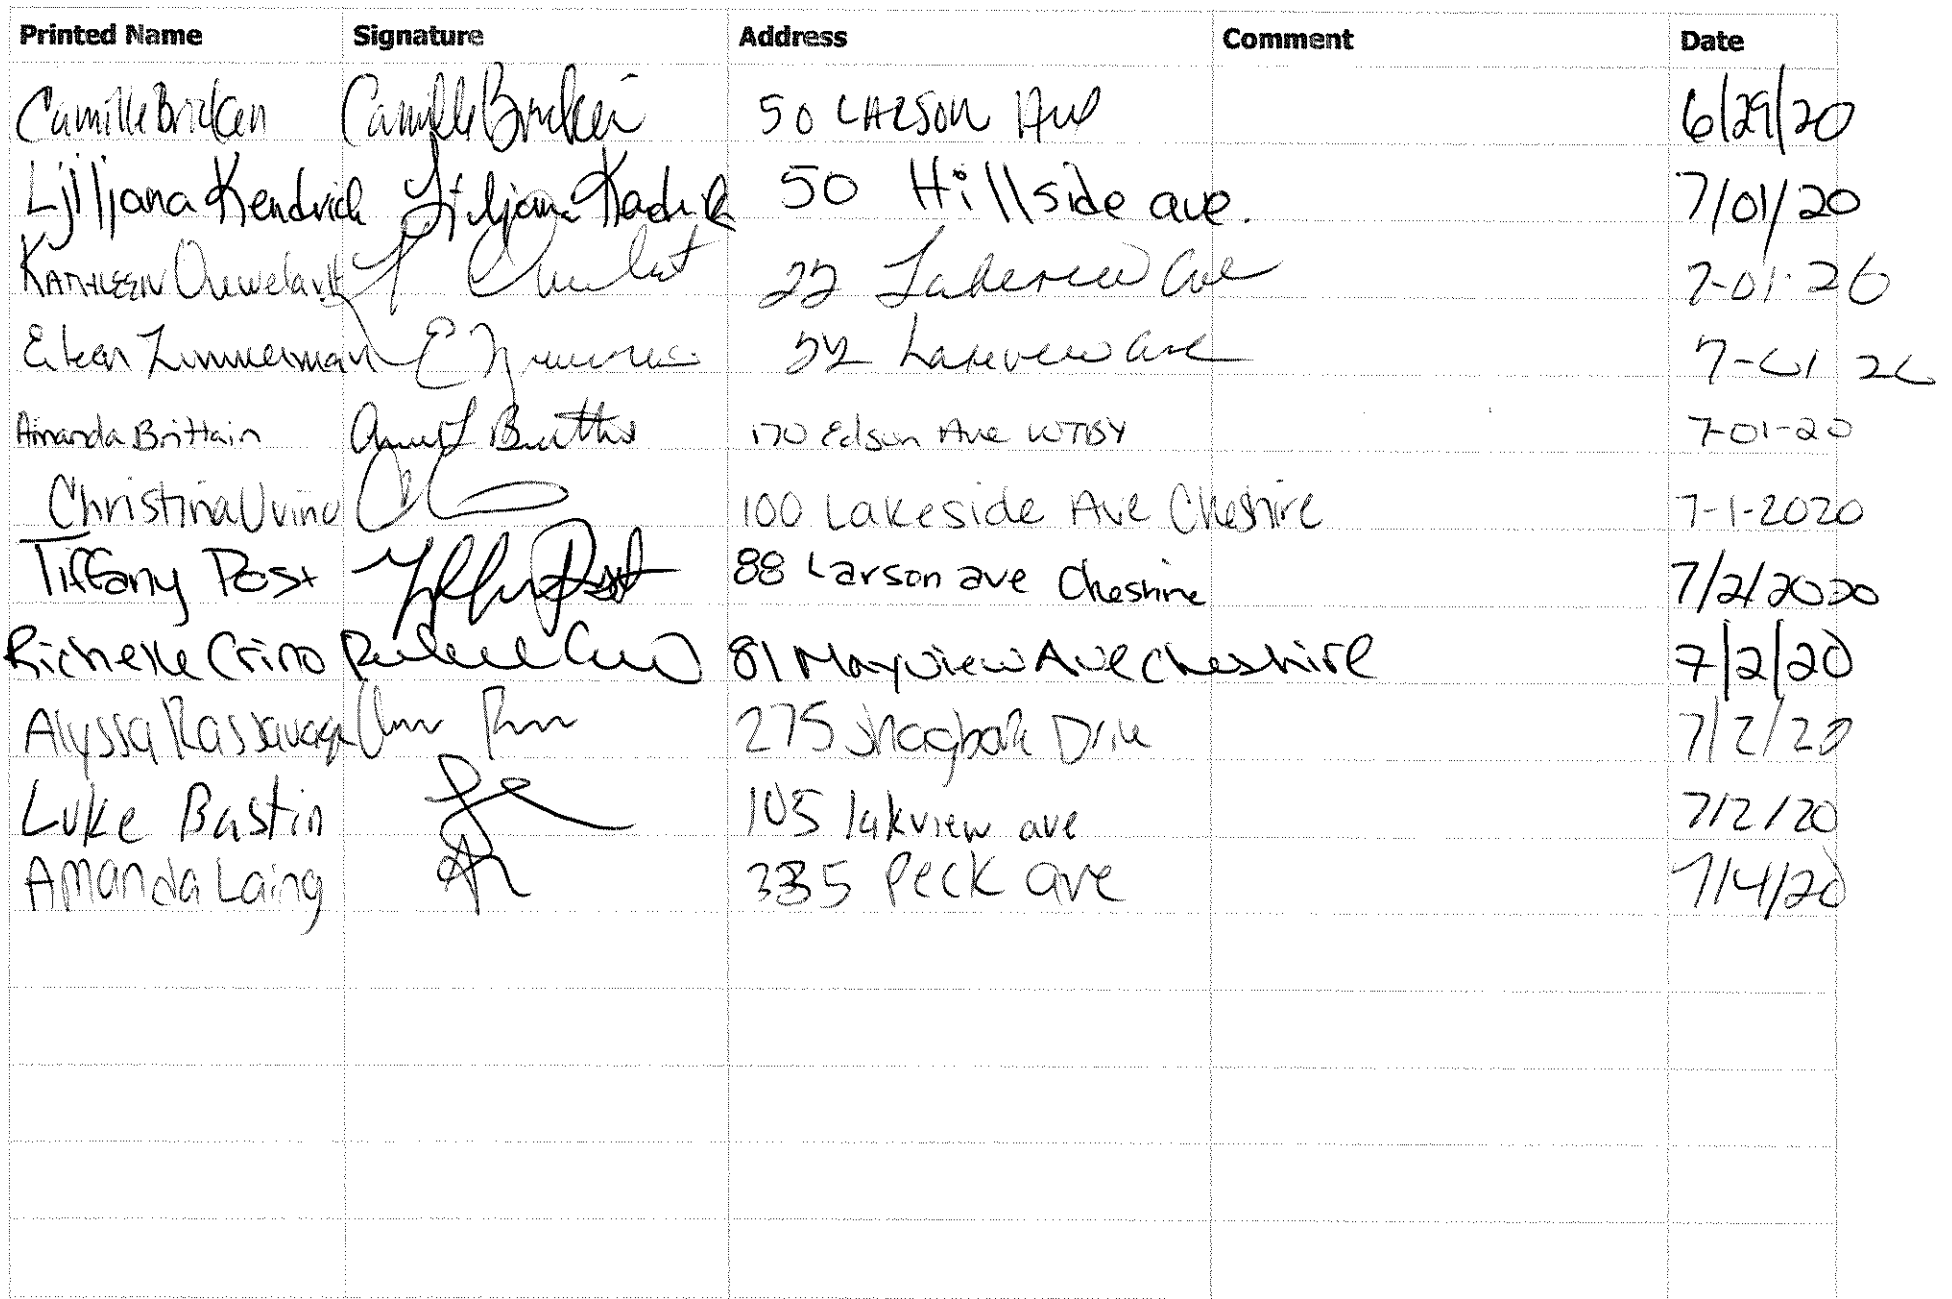 Printed Name Signature Address Comment Date
Camille Bricken Camille Bricken 50 LARSON Ave 6/29/20
Ljiljana Kendrick Ljiljana Kendrick 50 Hillside ave. 7/01/20
KATHLEEN 22 Lakeview Ave 7-01-20
Eileen Zimmerman E Zimmerman Lakeview Ave 7-01 20
Amanda Brittain 170 Edson Ave WTBY 7-01-20
Christina Uvino 100 Lakeside Ave Cheshire 7-1-2020
Tiffany Post Tiffany Post 88 Larson ave Cheshire 7/2/2020
Richelle Crino Richelle Crino 81 Mayview Ave Cheshire 7/2/20
Alyssa 275 Drive 7/2/20
Luke Bastin 105 lakview ave 7/2/20
Amanda Laing Peck ave 7/4/20